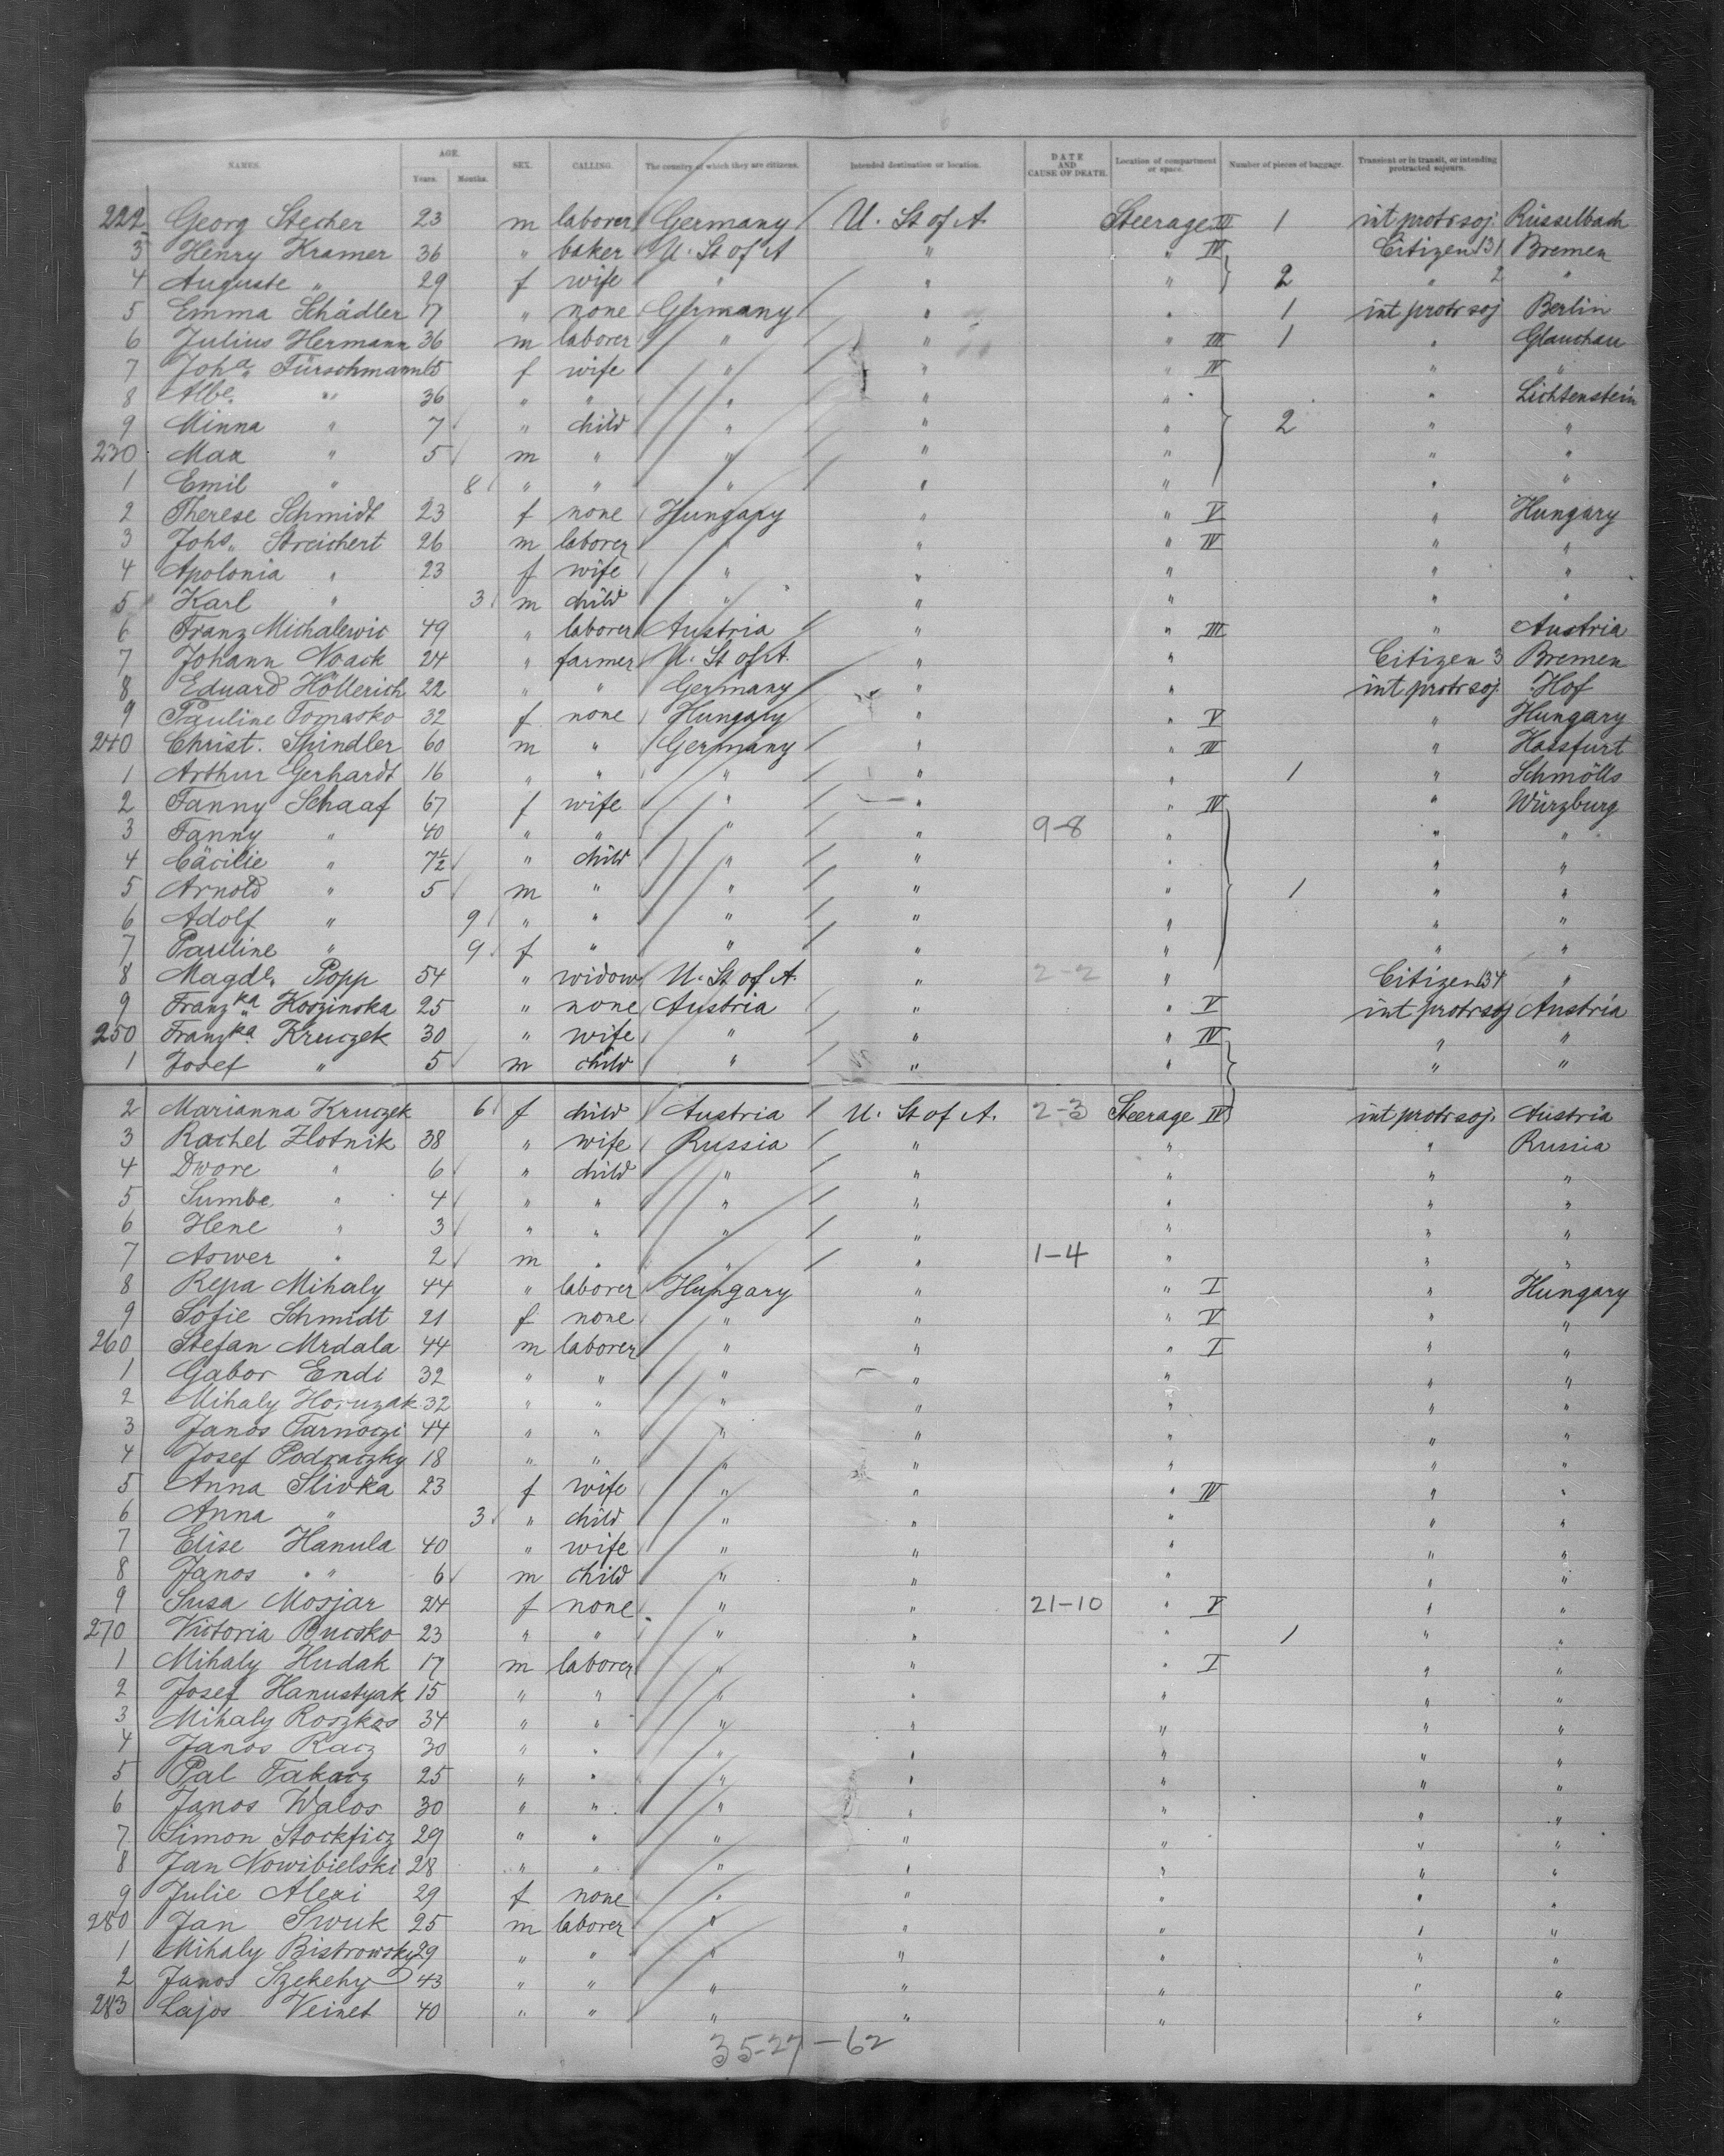 NAMES. AGE. SEX. CALLING. The country of which they are citizens. Intended destination or location. DATE AND CAUSE OF DEATH. Location of compartment or space. Number of pieces of baggage. Transient or in transit, or intending protracted sojourn.
Years. Months.
222 Georg Stecher 23 m laborer Germany U. St of A. Steerage III 1 int protr soj. Rüsselbach
3 Henry Kramer 36 " baker U. St of A " " IV Citizen 131 Bremen
4 Auguste " 29 f wife " " " 2 " 2 "
5 Emma Schädler 17 " none Germany " " 1 int protr soj Berlin
6 Julius Hermann 36 m laborer " " " III 1 " Glauchau
7 Joha. Fürschmann 65 f wife " " " IV " "
8 Albe. " 36 " " " " " " Lichtenstein
9 Minna " 7 " child " " " 2 " "
230 Max " 5 m " " " " " "
1 Emil " 8 " " " " " " "
2 Therese Schmidt 23 f none Hungary " " V " Hungary
3 Johs. Streichert 26 m laborer " " " IV " "
4 Apolonia " 23 f wife " " " " "
5 Karl " 3 m child " " " " "
6 Franz Michalewic 49 " laborer Austria " " III " Austria
7 Johann Noack 24 " farmer U. St of A. " " Citizen 3 Bremen
8 Eduard Höllerich 22 " " Germany " " int protr soj. Hof
9 Pauline Tomasko 32 f none Hungary " " V " Hungary
240 Christ. Spindler 60 m " Germany " " III " Hassfurt
1 Arthur Gerhardt 16 " " " " " 1 " Schmölls
2 Fanny Schaaf 67 f wife " " " IV " Würzburg
3 Fanny " 40 " " " " 9-8 " " "
4 Cäcilie " 7½ " child " " " " "
5 Arnold " 5 m " " " " 1 " "
6 Adolf " 9 " " " " " " "
7 Pauline " 9 f " " " " " "
8 Magdl. Popp 54 " widow U. St of A. " 2-2 " Citizen 134 "
9 Franzka Koszinska 25 " none Austria " " V int protr soj Austria
250 Franzka Kruczek 30 " wife " " " IV " "
1 Josef " 5 m child " " " " "
2 Marianna Kruczek 6 f child Austria U. St of A. 2-3 Steerage IV int protr soj. Austria
3 Rachel Zlotnik 38 " wife Russia " " " Russia
4 Dwore " 6 " child " " " " "
5 Sumbe " 4 " " " " " " "
6 Hene " 3 " " " " " " "
7 Aswer " 2 m " " " 1-4 " " "
8 Repa Mihaly 44 " laborer Hungary " " I " Hungary
9 Sofie Schmidt 21 f none " " " V " "
260 Stefan Mrdala 44 m laborer " " " I " "
1 Gabor Endi 32 " " " " " " "
2 Mihaly Horuzak 32 " " " " " " "
3 Janos Tarnoczi 44 " " " " " " "
4 Josef Podraczky 18 " " " " " " "
5 Anna Slivka 23 f wife " " " IV " "
6 Anna " 3 " child " " " " "
7 Elise Hanula 40 " wife " " " " "
8 Janos " " 6 m child " " " " "
9 Susa Mosjar 24 f none " " 21-10 " V " "
270 Victoria Bucsko 23 " " " " " 1 " "
1 Mihaly Hudak 17 m laborer " " " I " "
2 Josef Hanustyak 15 " " " " " " "
3 Mihaly Roszkos 34 " " " " " " "
4 Janos Racz 30 " " " " " " "
5 Pal Takacz 25 " " " " " " "
6 Janos Walos 30 " " " " " " "
7 Simon Stockficz 29 " " " " " " "
8 Jan Nowibielski 28 " " " " " " "
9 Julie Alexi 29 f none " " " " "
280 Jan Swuk 25 m laborer " " " " "
1 Mihaly Bistrowsky 29 " " " " " " "
2 Janos Szekehy 43 " " " " " " "
283 Lajos Veinet 40 " " " " " " "
35-27-62